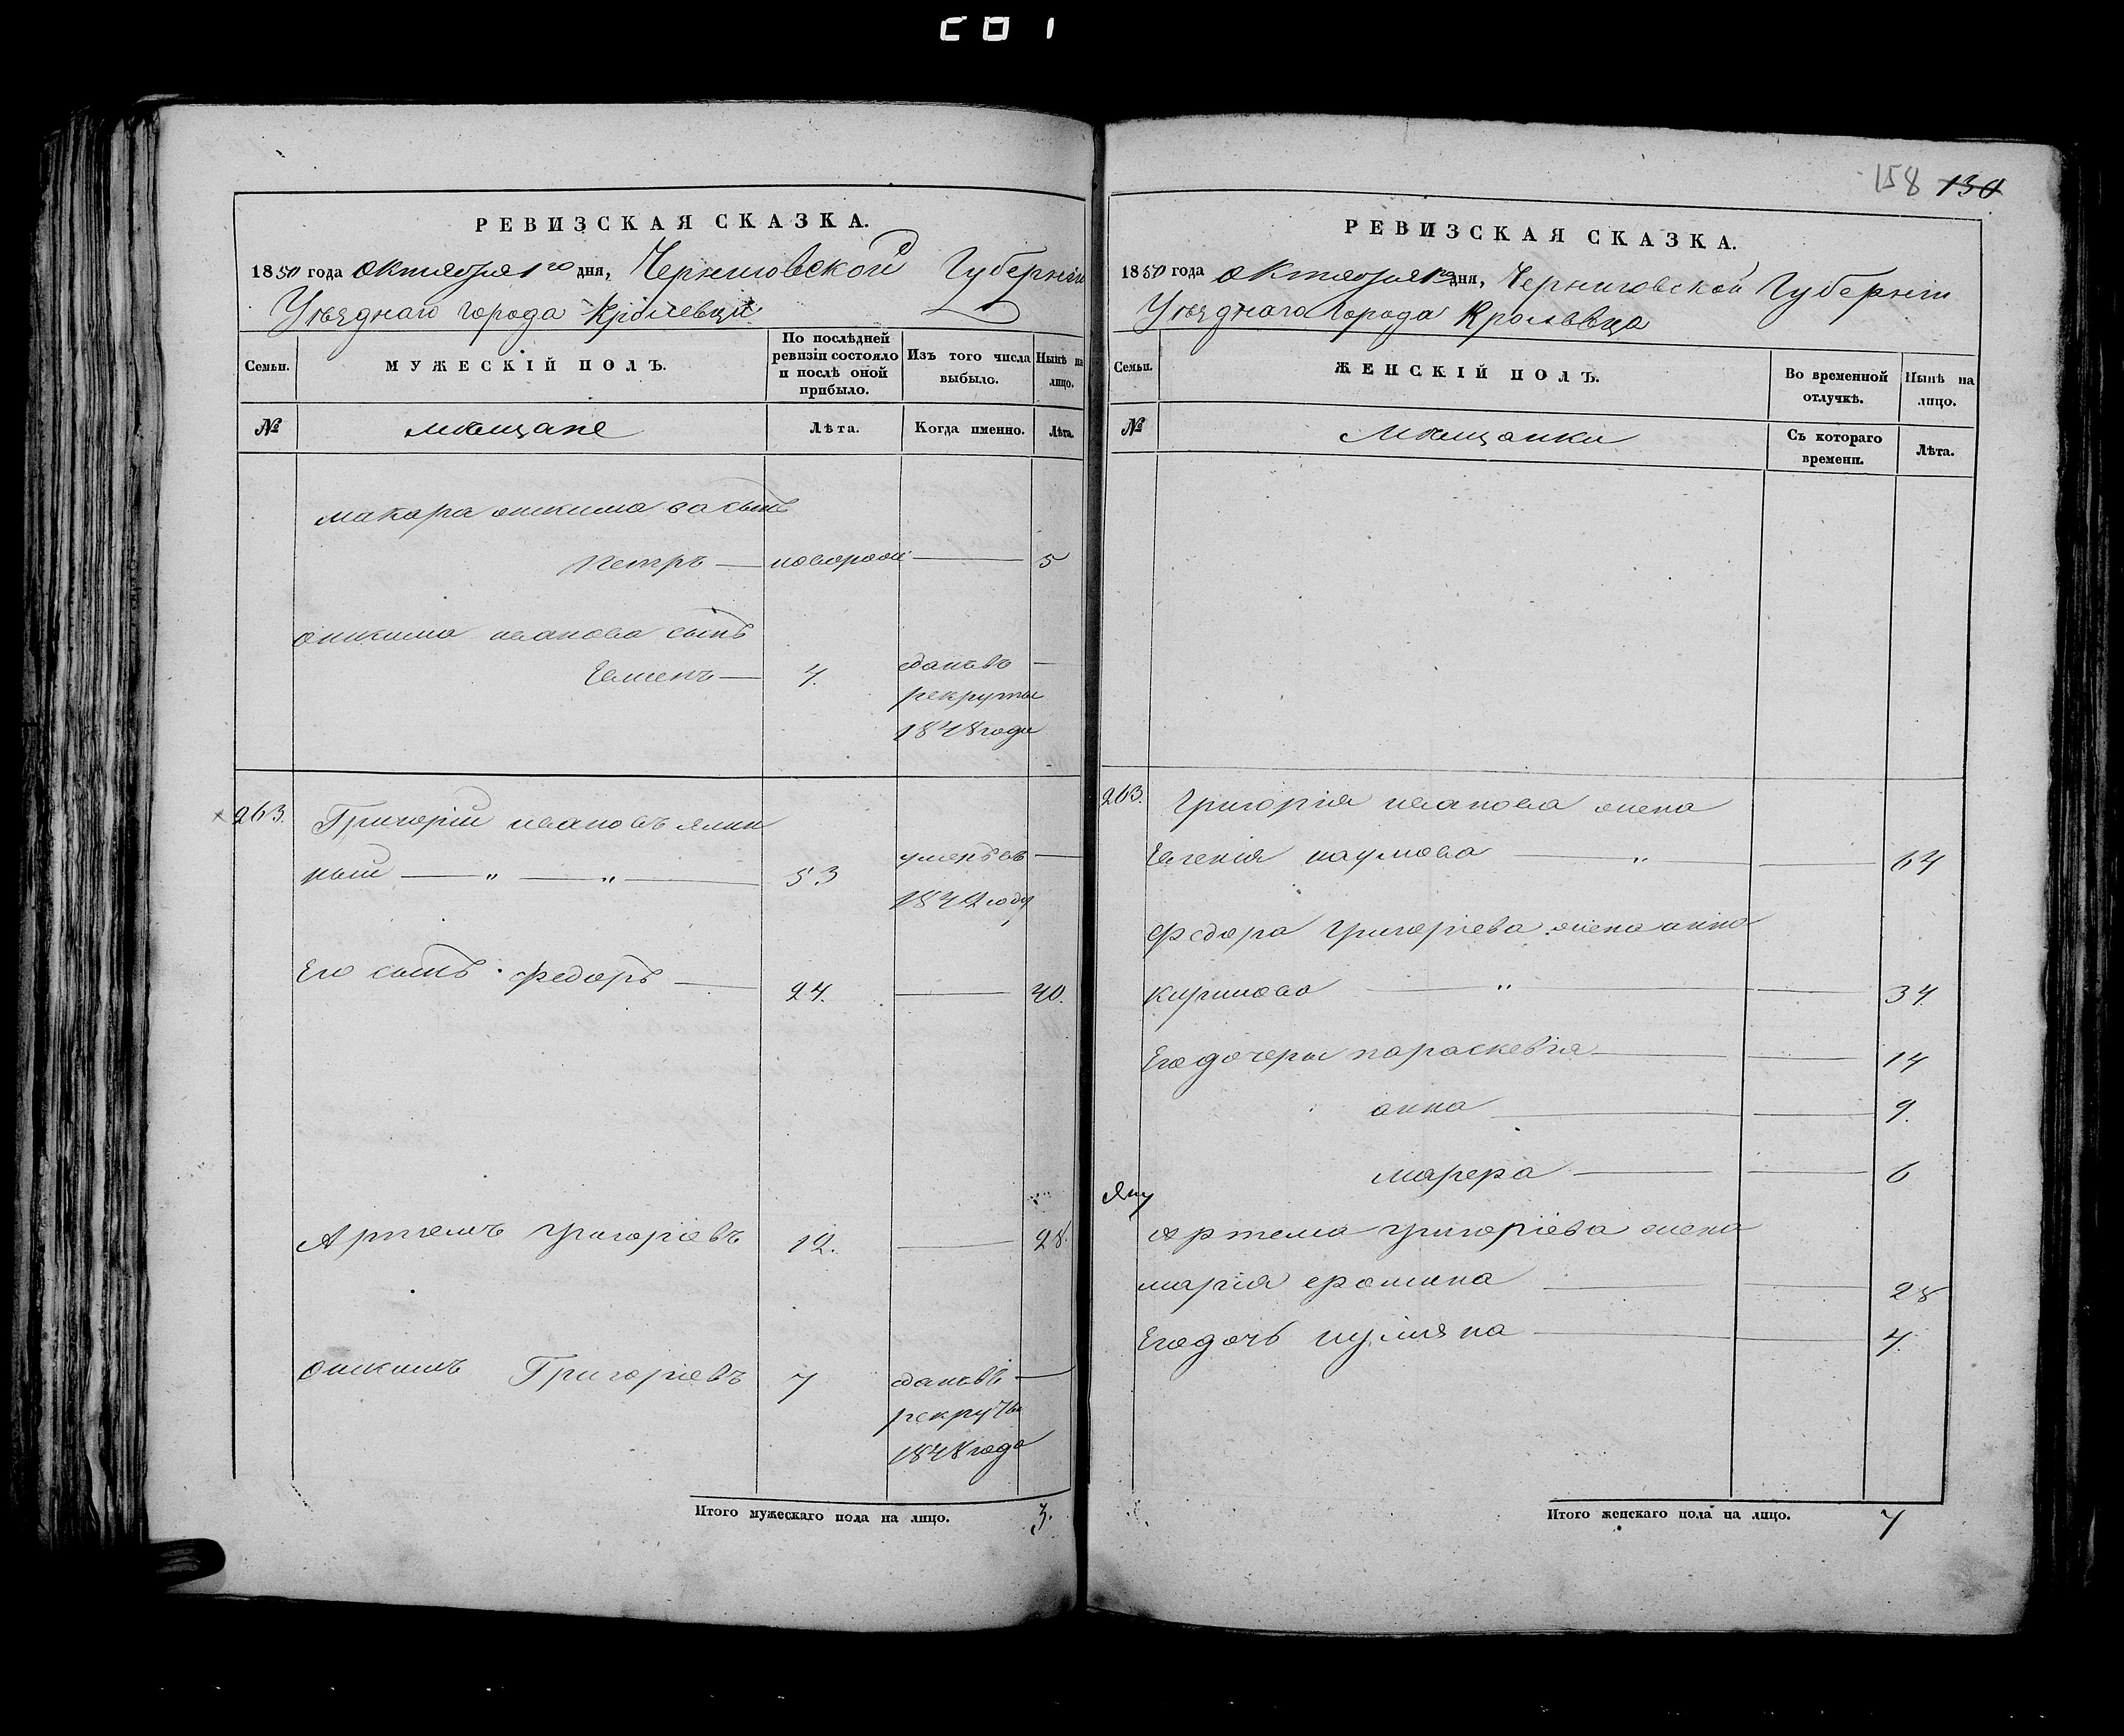 РЕВИЗСКАЯ СКАЗКА.
1850 года октября 1го дня, Черниговской Губерніи
Уѣзднаго города Кролевца
Семьи. МУЖЕСКІЙ ПОЛЪ. По послѣдней ревизіи состояло и послѣ оной прибыло. Изъ того числа выбыло. Нынѣ на лицо.
№ мѣщане Лѣта. Когда именно. Лѣта.
макара сынъ
Петръ — — 5
иванова сынъ
Семенъ — 4. сданъ въ —
рекруты
1848 года
263. Григорій ивановъ
ный — " — " — 53 умеръ въ —
1842 году
Его сынъ федоръ — 24. — 40.
Артемъ григоріевъ 12. — 28.
Григоріевъ 7 сданъ въ —
рекруты
1848 года
Итого мужескаго пола на лицо. 3.
158 130
РЕВИЗСКАЯ СКАЗКА.
1850 года октября 1го дня, Черниговской Губерніи
Уѣзднаго города Кролевца
Семьи. ЖЕНСКІЙ ПОЛЪ. Во временной отлучкѣ. Нынѣ на лицо.
№ Мѣщанки Съ котораго времени. Лѣта.
263. Григорія иванова жена
Евгенія наумова — " — 64
федора григоріева жена анна
— " — 34
Его дочери параскевія — 14
анна — 9.
марфа — 6
артема григоріева жена
марія фомина — 28
Его дочь — 4.
Итого женскаго пола на лицо. 7